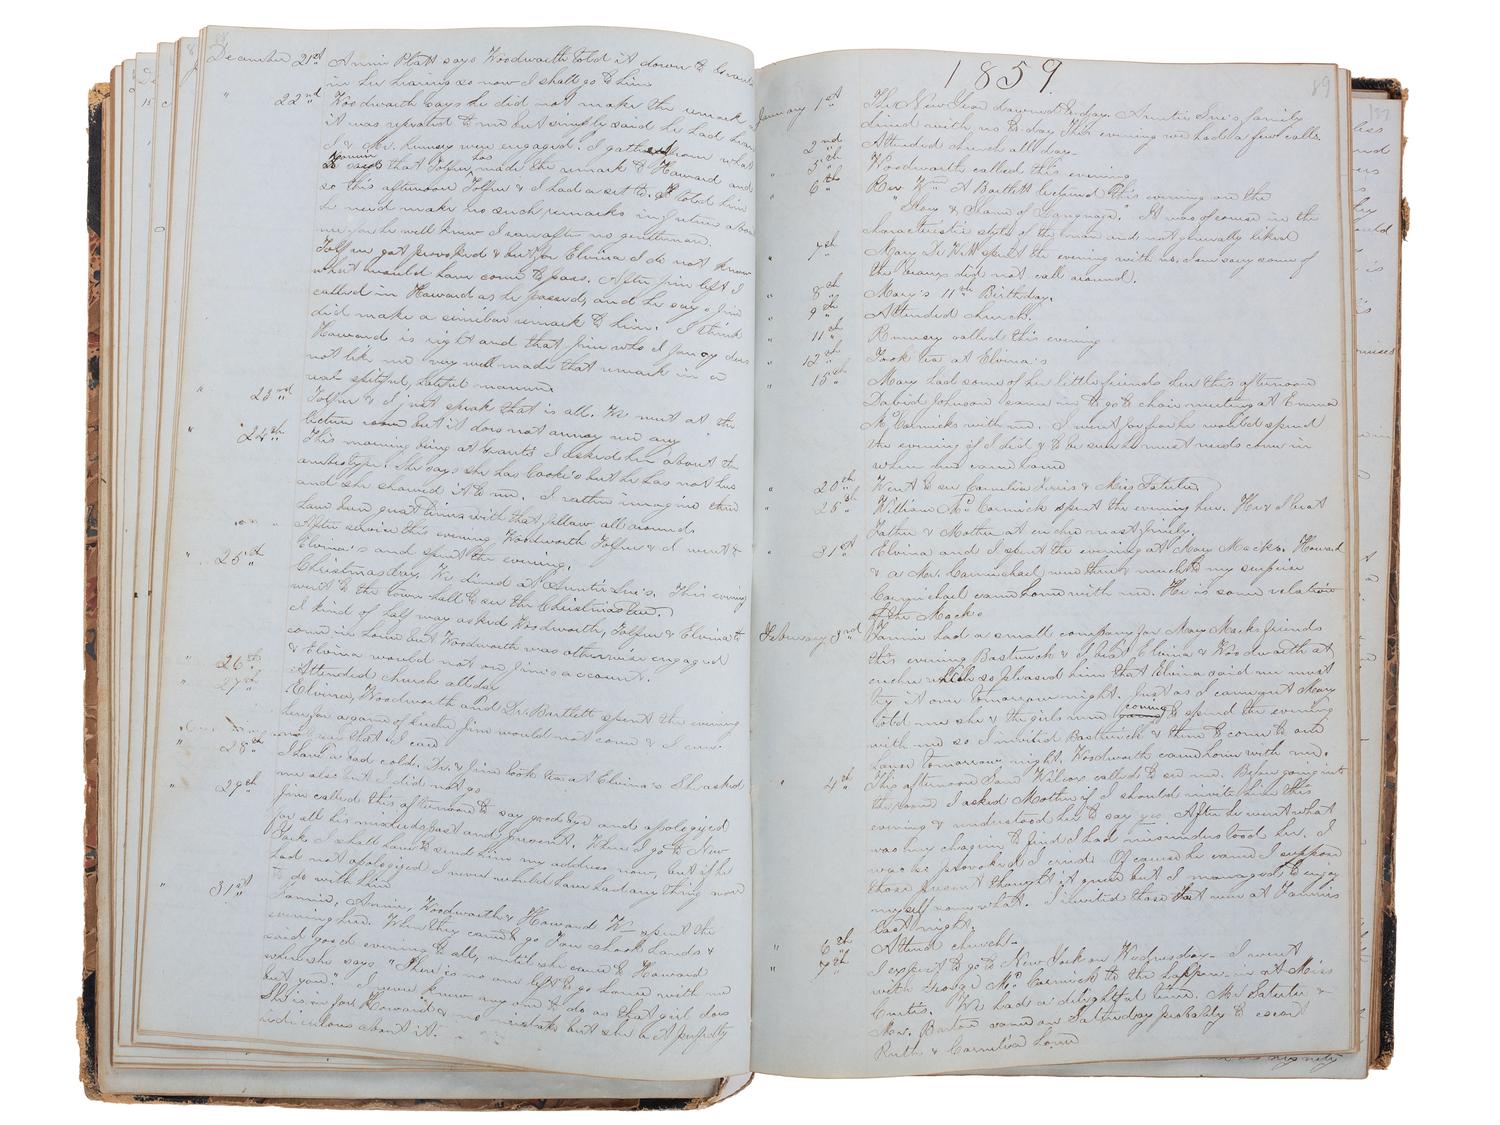 88
December 21st Annie Platt says Woodworth told it down to Grants
in her hearing so now I shall go to him
" 22nd Woodworth says he did not make the remark as
it was repeated to me but simply said he had heard
I & Mr. Rumsey were engaged. I gather from what
Fannie says that Tolfree has made the remark to Howard and
so this afternoon Tolfree & I had a set to. I told him
he need make no such remarks in future about
me for he well knew I ran after no gentlemen.
Tolfree got provoked & but for Elvina I do not know
what would have come to pass. After Jim left I
called in Howard as he passed, and he says Jim
did make a similar remark to him. I think
Howard is right and that Jim who I fancy does
not like me very well made that remark in a
real spiteful, hateful manner
" 23rd Tolfree & I just speak that is all. We meet at the
lecture room but it does not annoy me any
" 24th This morning being at Grants I asked her about the
ambrotype. She says she has Cooke's but he has not hers
and she showed it to me. I rather imagine there
have been great times with that fellow all around.
After service this evening Woodworth Tolfree & I went to
Elvina's and spent the evening.
" 25th Christmas day. We dined at Auntie Sue's. This evening
went to the town hall to see the Christmas tree.
I kind of half way asked Woodworth, Tolfree & Elvina to
come in home but Woodworth was otherwise engaged
& Elvina would not on Jim's account.
" 26th Attended church all day
" 27th Elvina, Woodworth and Dr. Bartlett spent the evening
here for a game of euchre Jim would not come & I can
not say that I care
" 28th I have a bad cold. Dr. & Jim took tea at Elvina's She asked
me also but I did not go
" 29th Jim called this afternoon to say good bye and apologized
for all his misdeeds past and present. When I go to New
York I shall have to send him my address now, but if he
had not apologized I never would have had anything more
to do with him
" 31st Fannie, Annie, Woodworth & Howard W spent the
evening here. When they came to go Fan shook hands &
said good evening to all, until she came to Howard
when she says "There is no one left to go home with me
but you." I never knew any one to do as that girl does
She is in for Howard & no mistake but she is perfectly
ridiculous about it.
1859. 89
January 1st The New Year dawned to day. Auntie Sue's family
dined with us to day This evening we had a few calls.
" 2nd Attended church all day.
" 5th Woodworth called this evening
" 6th Rev Wm A Bartlett lectured this evening on the
"Glory & Shame of Language." It was of course in the
characteristic style of the man and not generally liked
" 7th Mary De Witt spent the evening with us. I am sorry some of
the beaux did not call around.
" 8th Mary's 11th Birthday.
" 9th Attended church.
" 11th Rumsey called this evening
" 12th Took tea at Elvina's
" 15th Mary had some of her little friends here this afternoon
David Johnson came in to go to choir meeting at Emma
McCormicks with me. I went for fear he would spend
the evening if I did & to be sure he must needs come in
when he came home
" 20th Went to see Cornelia & Miss Saterlee
" 25th William McCormick spent the evening here. He & I beat
Father & Mother at euchre most finely.
" 31st Elvina and I spent the evening at Mary Macks. Howard
& a Mr. Carmichael were there & much to my surprise
Carmichael came home with me. He is some relation
of the Macks
February 3rd Fannie had a small company for Mary Macks friends
this evening Bostwick & I beat Elvina & Woodworth at
euchre which so pleased him that Elvina said we must
try it over tomorrow night. Just as I came out Mary
told me she & the girls were coming to spend the evening
with me so I invited Bostwick & them to come to our
house tomorrow night. Woodworth came home with me.
" 4th This afternoon Sam Wilcox called to see me. Before going into
the room I asked Mother if I should invite him this
evening & understood her to say yes After he went what
was my chagrin to find I had misunderstood her. I
was so provoked I cried Of course he came I suppose
those present thought it queer but I managed to enjoy
myself somewhat. I invited those that were at Fannies
last night.
" 6th Attend church.
" 7th I expect to go to New York on Wednesday. I went
with George McCormick to the happen in at Miss
Curtis. We had a delightful time. Mr Saterlee &
Mr. Barton came on Saturday probably to escort
Ruth & Cornelia home